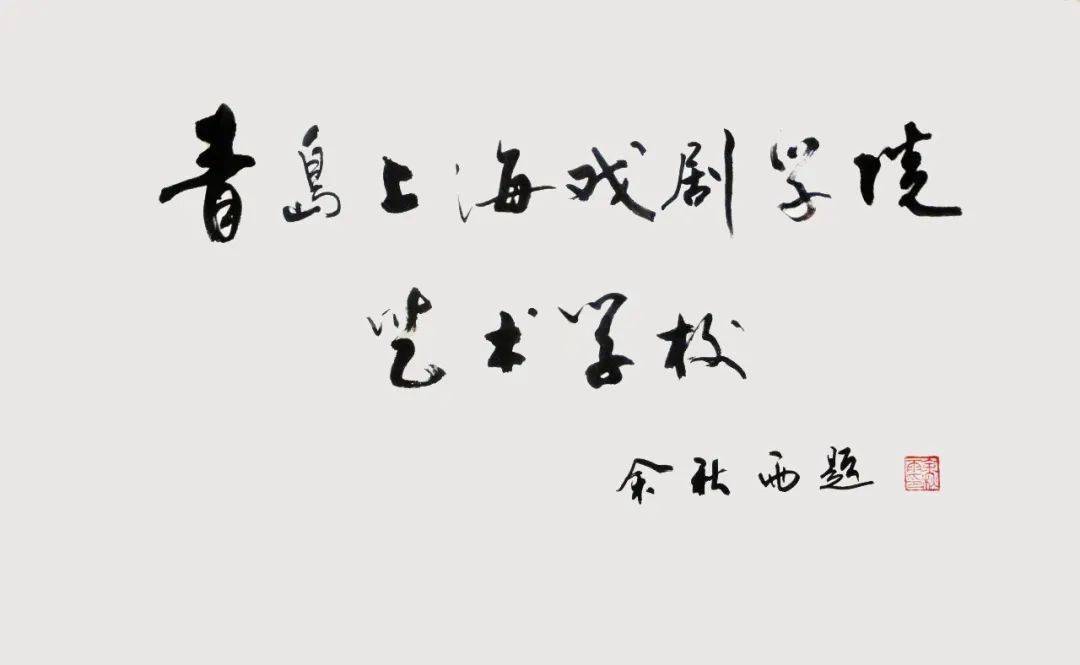 青岛上海戏剧学院
艺术学校
余秋雨题